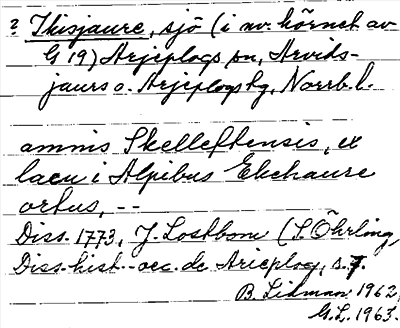 ? Ikisjaure, sjö (i nv. hörnet av
G 19) Arjeplogs sn, Arvids-
jaurs o. Arjeplogs tg, Norrb. l.
amnis Skelleftensis, ex
lacu i Alpibus Ekchaure
ortus, --
Diss. 1773, J. Lostbom (S. Öhrling,
Diss. hist.-oec. de Arieplog, s. 7.
B. Lidman, 1962,
G.L. 1963.